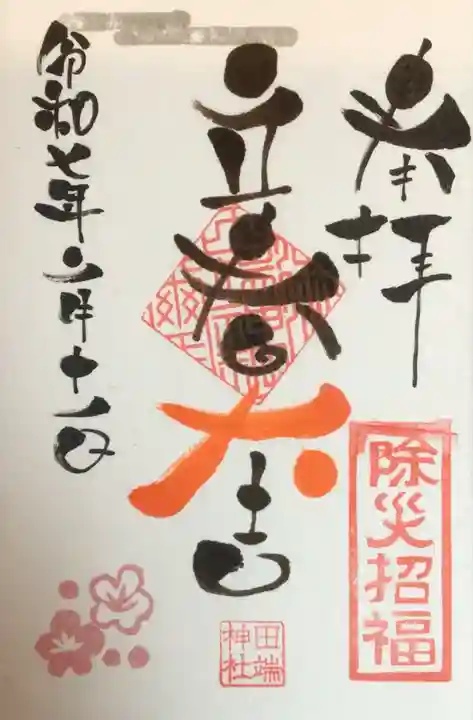 奉拝
除災招福
立春大吉
田端神社
令和七年二月十一日